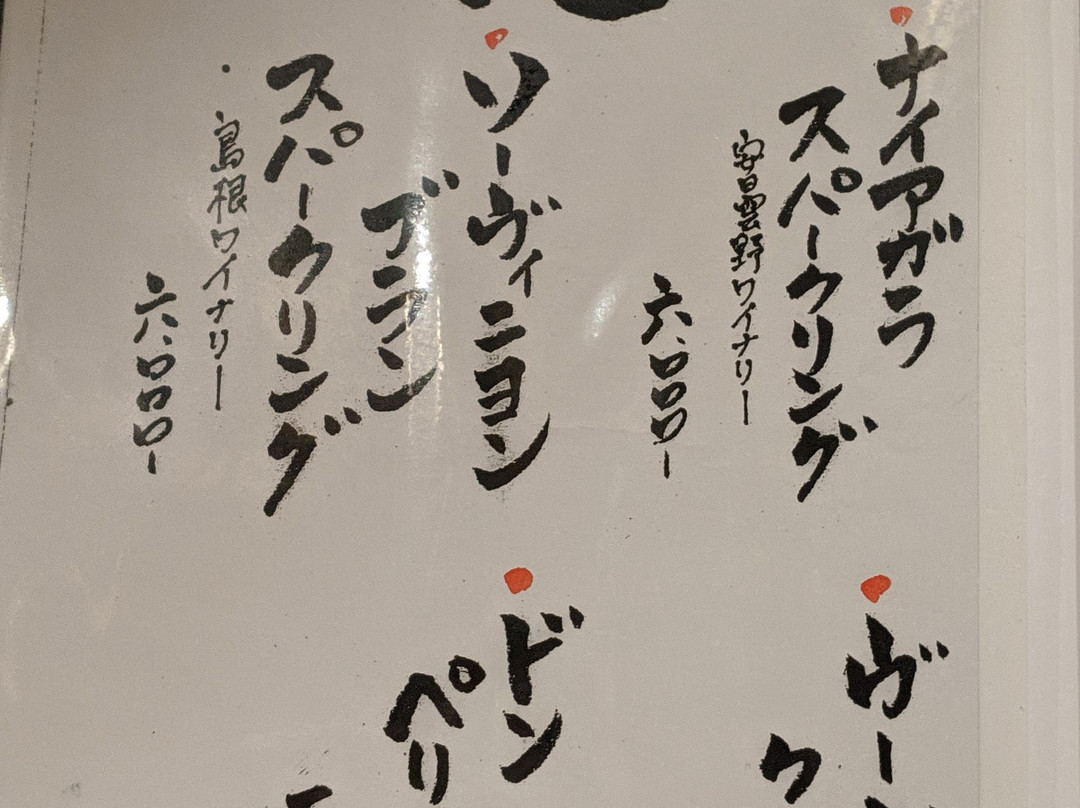 ナイアガラ
スパークリング
安曇野ワイナリー
六、〇〇〇ー
ソーヴィニヨン
ブラン
スパークリング
島根ワイナリー
六、〇〇〇ー
ヴー
ク
ドン
ペリ